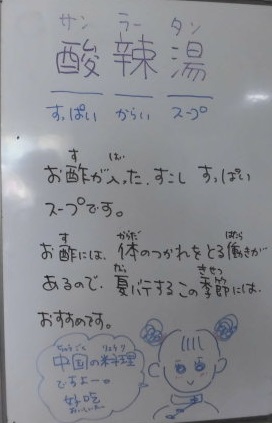 サン ラー タン
酸 辣 湯
すっぱい からい スープ
す はい
お酢が入った、すこし すっぱい
スープです。
す からだ はたら
お酢には、体のつかれをとる働きが
なつ きせつ
あるので、夏バテするこの季節には、
おすすめです。
ちゅうごく りょうり
中国の料理
ですよー。
好吃
おいしい